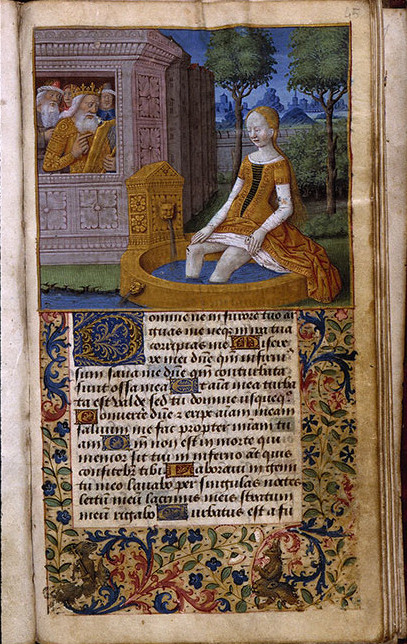 45
Domine ne in furore tuo ar
guas me neqz in ira tua
corripias me Misere
re mei dñe qm̃ infirm
sum sana me dñe qm̃ conturbata
sunt ossa mea Et aĩa mea turba
ta est valde sed tu domine usqueq
Convertere dñe ⁊ eripe aĩam meam
salvum me fac propter mĩam tu
am Qm̃ non est in morte qui
memor sit tui in inferno aũt quis
confitebit tibi Laboravi in gemi
tu meo lavabo per singulas noctes
lectum meum lacrimis meis stratum
meum rigabo Turbatus est a fu